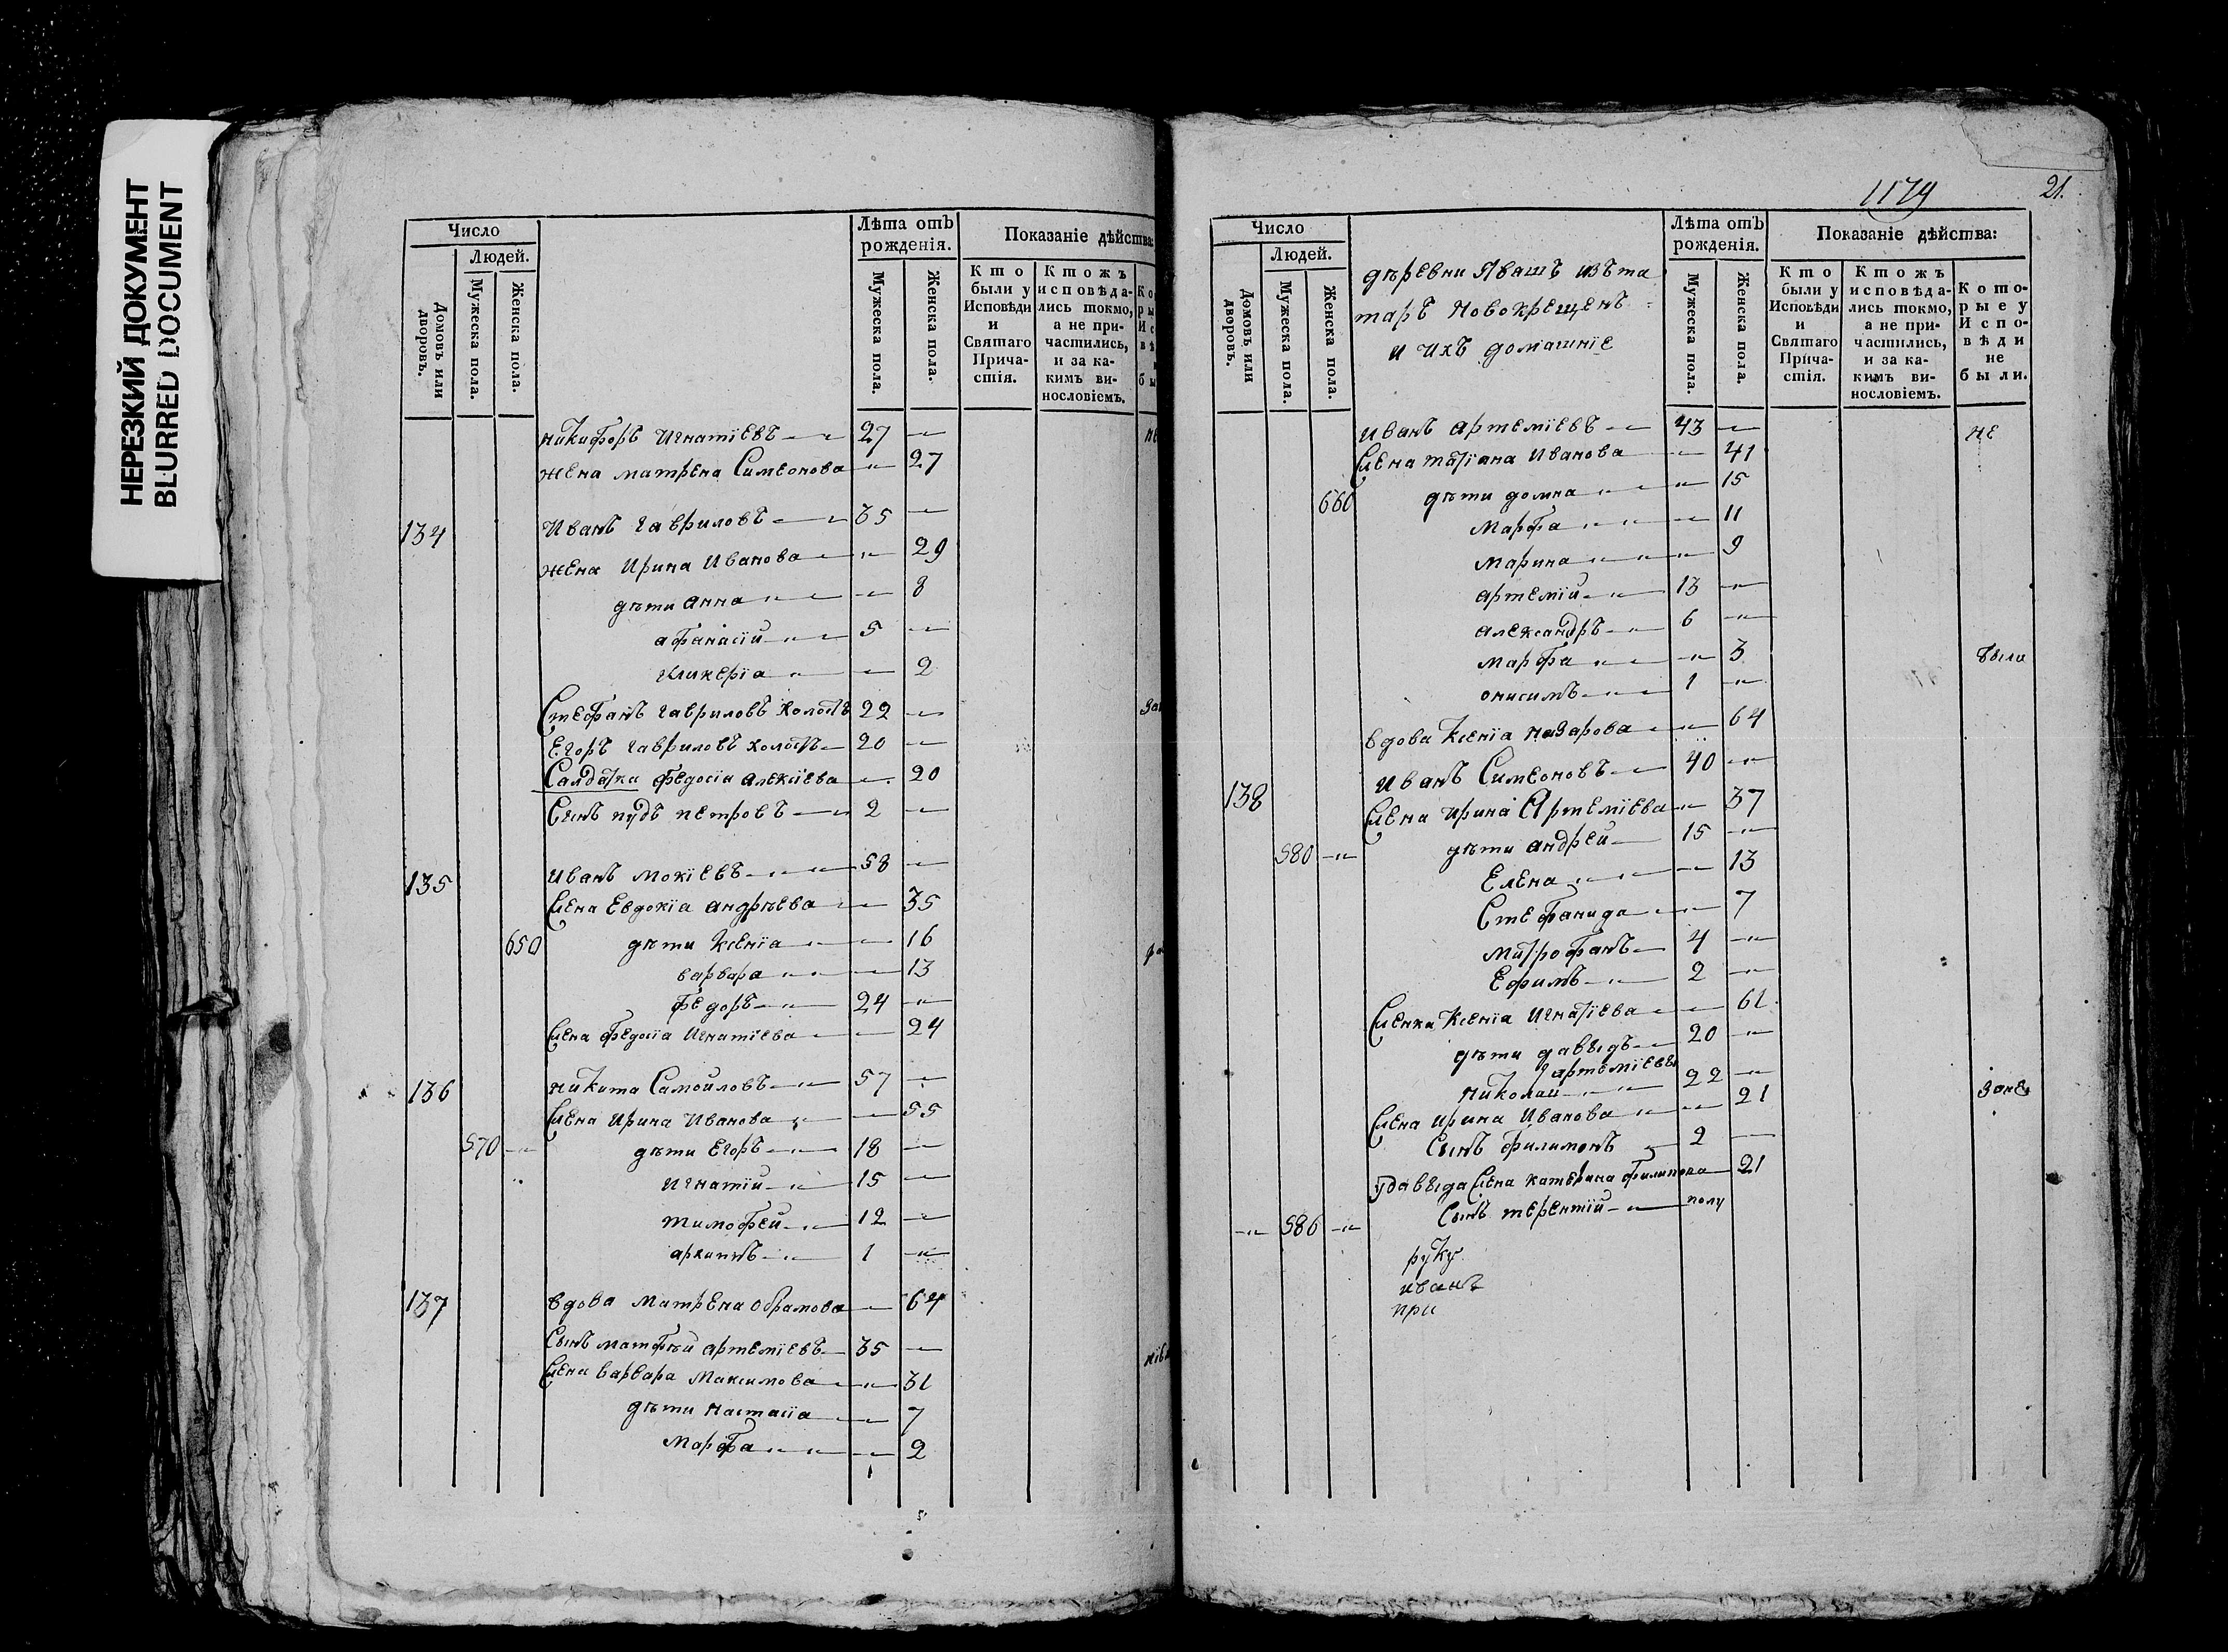 НЕРЕЗКИЙ ДОКУМЕНТ
BLURRED DOCUMENT
Число
Людей.
Домовъ или дворовъ.
Мужеска пола.
Женска пола.
Лѣта отъ рожденія.
Мужеска пола.
Женска пола.
Показаніе дѣйства:
Кто были у Исповѣди и Святаго Причастія.
Ктожъ исповѣдались токмо, а не причастились, и за какимъ винословіемъ.
никифоръ игнатіевъ 27
жена матрена Симеонова 27
134 Иванъ гавриловъ 35
жена Ирина Иванова 29
дѣти анна 8
афанасіи 5
гликеріа 2
Стефанъ гавриловъ холостъ 22
Егоръ гавриловъ холостъ 20
Салдатка федосіа алексіева 20
Сынъ пудъ петровъ 2
135 иванъ мокіевъ 58
жена Евдокіа андрѣева 35
650 дѣти ксеніа 16
варвара 13
федоръ 24
жена федосіа игнатіева 24
136 никита Самоиловъ 57
жена ирина иванова 55
570 дѣти Егоръ 18
игнатіи 15
тимофеи 12
архипъ 1
137 вдова матрена обрамова 64
Сынъ матфѣи артеміевъ 35
жена варвара максимова 31
дѣти настасіа 7
марфа 2
1179
21.
Число
Людей.
Домовъ или дворовъ.
Мужеска пола.
Женска пола.
дѣревни Явашъ изъ та
таръ новокрещенъ
и ихъ домашніе
Лѣта отъ рожденія.
Мужеска пола.
Женска пола.
Показаніе дѣйства:
Кто были у Исповѣди и Святаго Причастія.
Ктожъ исповѣдались токмо, а не причастились, и за какимъ винословіемъ.
Которые у Исповѣди не были.
иванъ артеміевъ 43 не
жена татіана иванова 41
660 дѣти домна 15
марфа 11
марина 9
артеміи 13
александръ 6
марфа 3 были
онисимъ 1
вдова ксеніа назарова 64
138 иванъ Симеоновъ 40
жена ирина Артеміева 37
580 дѣти андреи 15
Елена 13
Стефанида 7
митрофанъ 4
Ефимъ 2
женка ксеніа игнатіева 61
дѣти давыдъ 20
артеміевы
николаи 22
жена ирина иванова 21
Сынъ филимонъ 2
у давыда жена катерина филипова 21
586 Сынъ терентіи полу
руку
иванъ
при